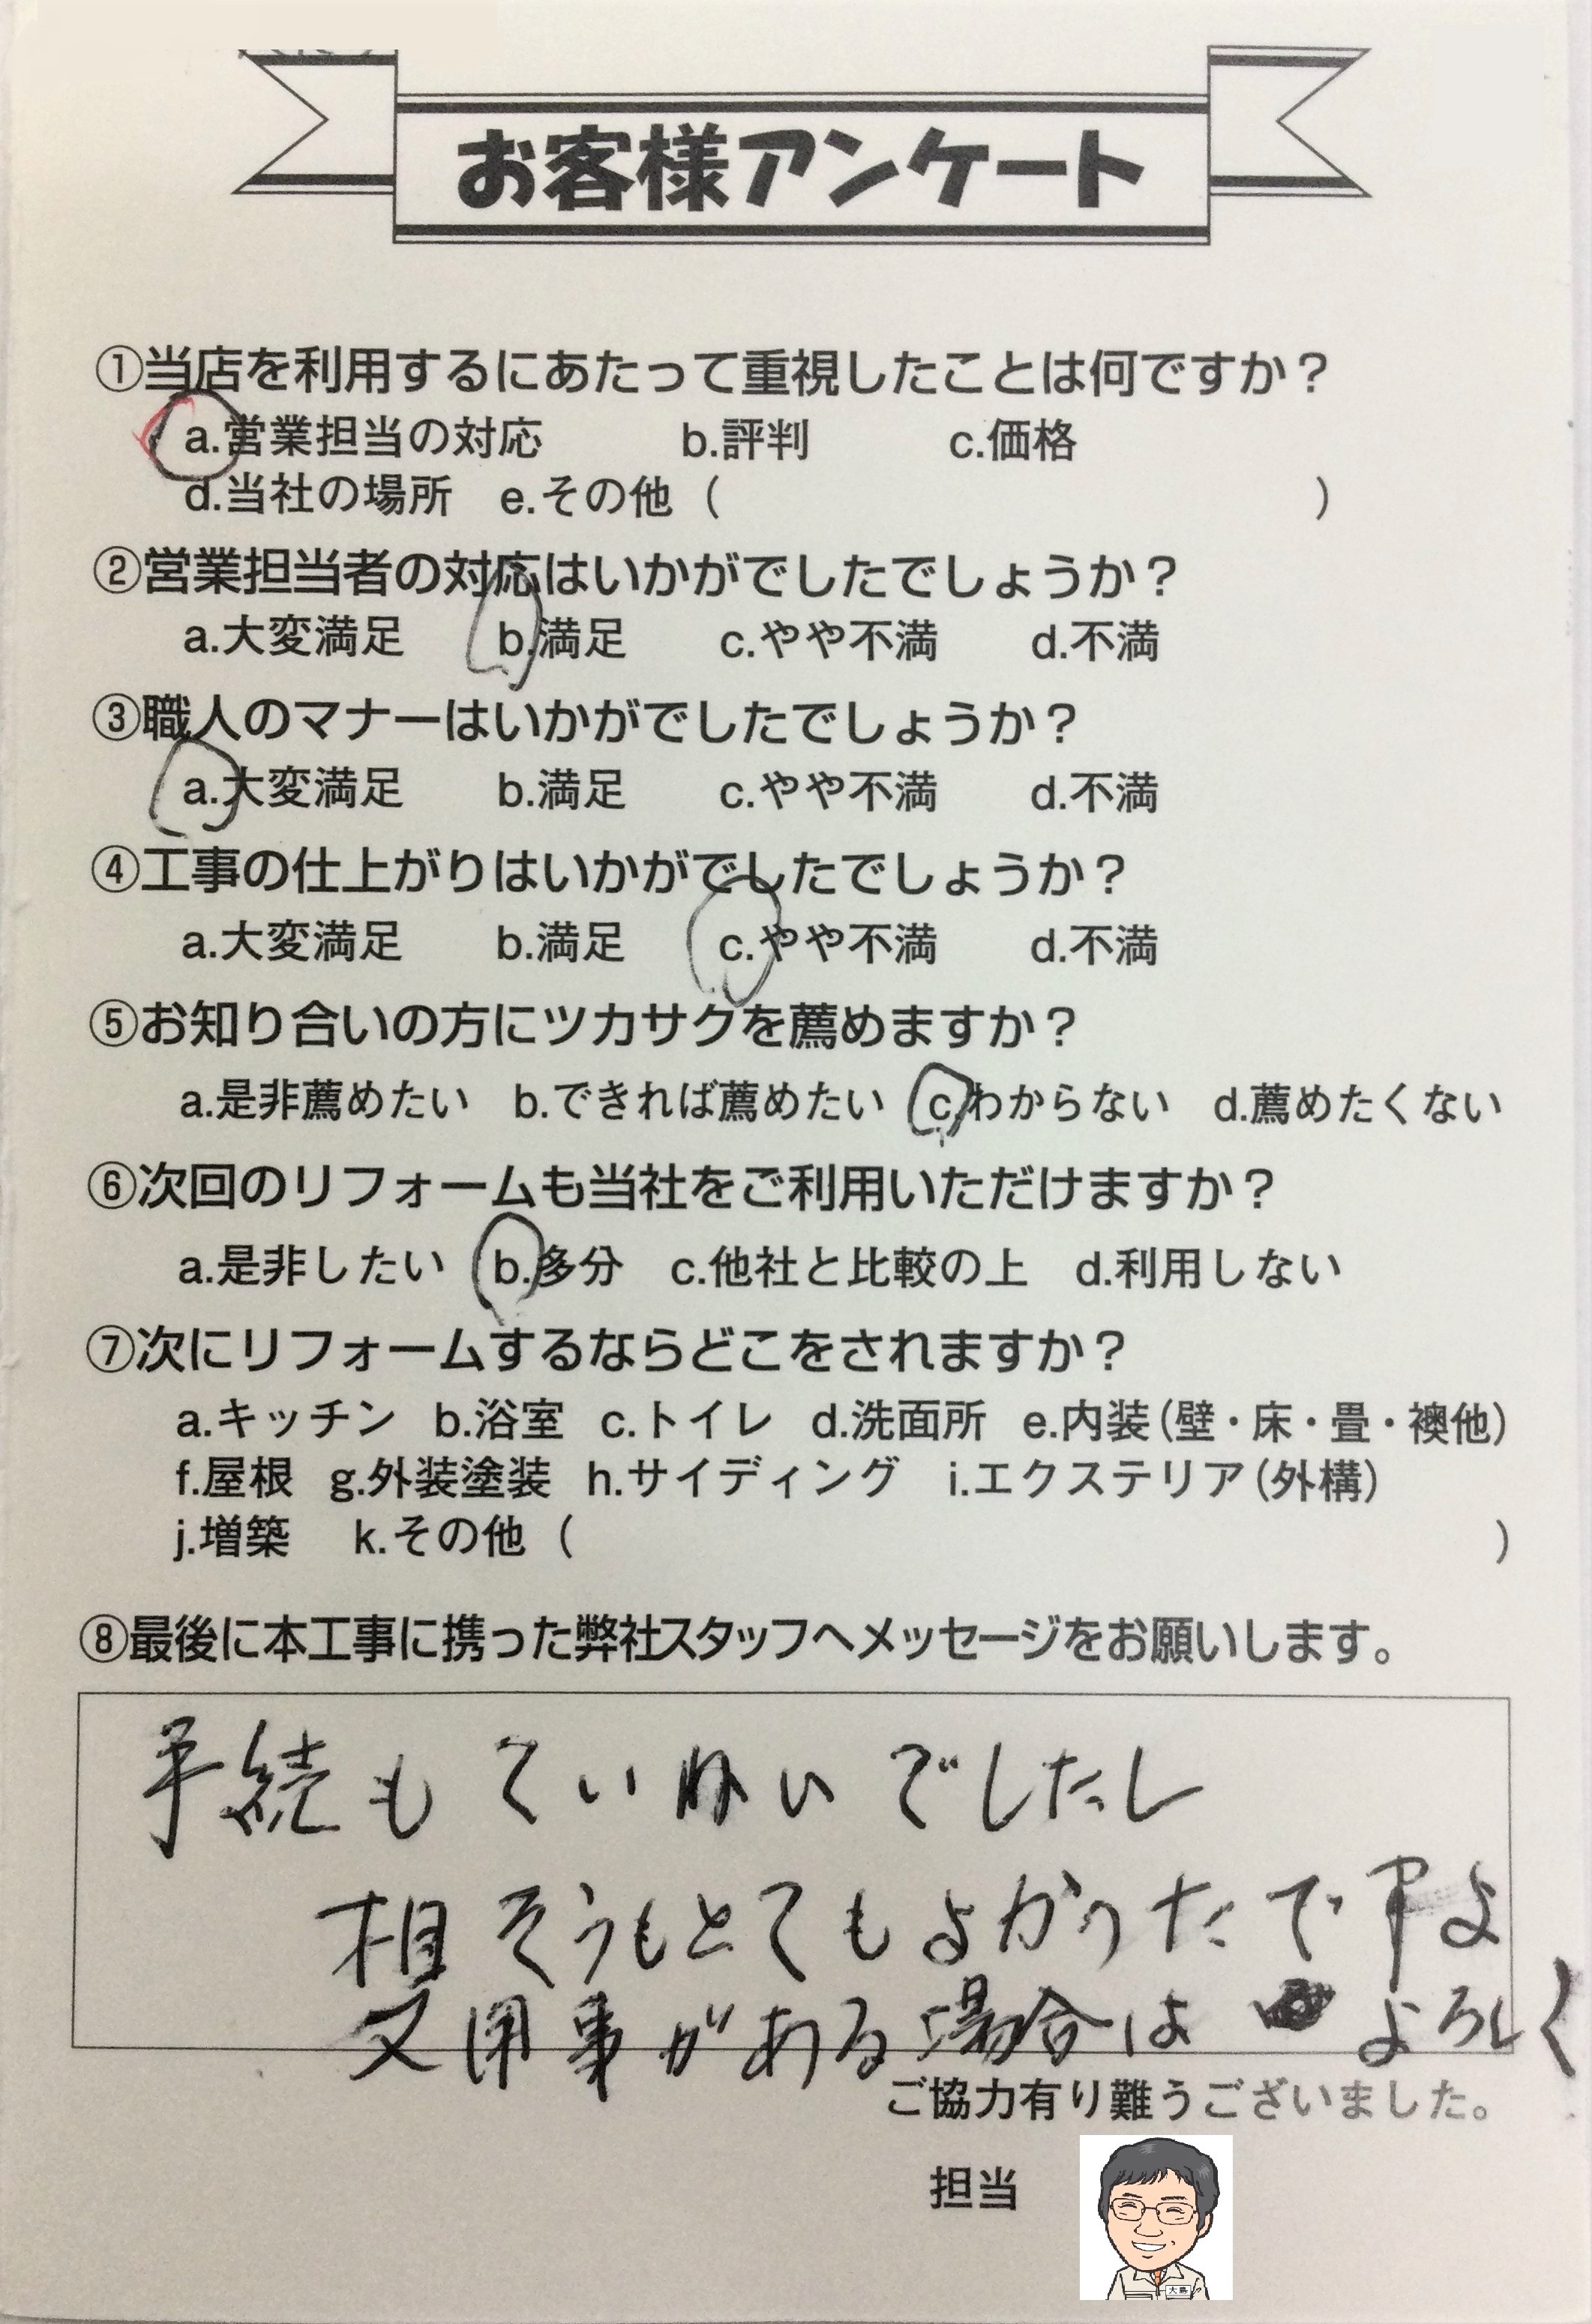 お客様アンケート
①当店を利用するにあたって重視したことは何ですか？
a.営業担当の対応 b.評判 c.価格
d.当社の場所 e.その他（ ）
②営業担当者の対応はいかがでしたでしょうか？
a.大変満足 b.満足 c.やや不満 d.不満
③職人のマナーはいかがでしたでしょうか？
a.大変満足 b.満足 c.やや不満 d.不満
④工事の仕上がりはいかがでしたでしょうか？
a.大変満足 b.満足 c.やや不満 d.不満
⑤お知り合いの方にツカサクを薦めますか？
a.是非薦めたい b.できれば薦めたい c.わからない d.薦めたくない
⑥次回のリフォームも当社をご利用いただけますか？
a.是非したい b.多分 c.他社と比較の上 d.利用しない
⑦次にリフォームするならどこをされますか？
a.キッチン b.浴室 c.トイレ d.洗面所 e.内装（壁・床・畳・襖他）
f.屋根 g.外装塗装 h.サイディング i.エクステリア（外構）
j.増築 k.その他（ ）
⑧最後に本工事に携った弊社スタッフへメッセージをお願いします。
手続もていねいでしたし
相そうもとてもよかったですよ
又用事がある場合は よろしく
ご協力有り難うございました。
担当
大島